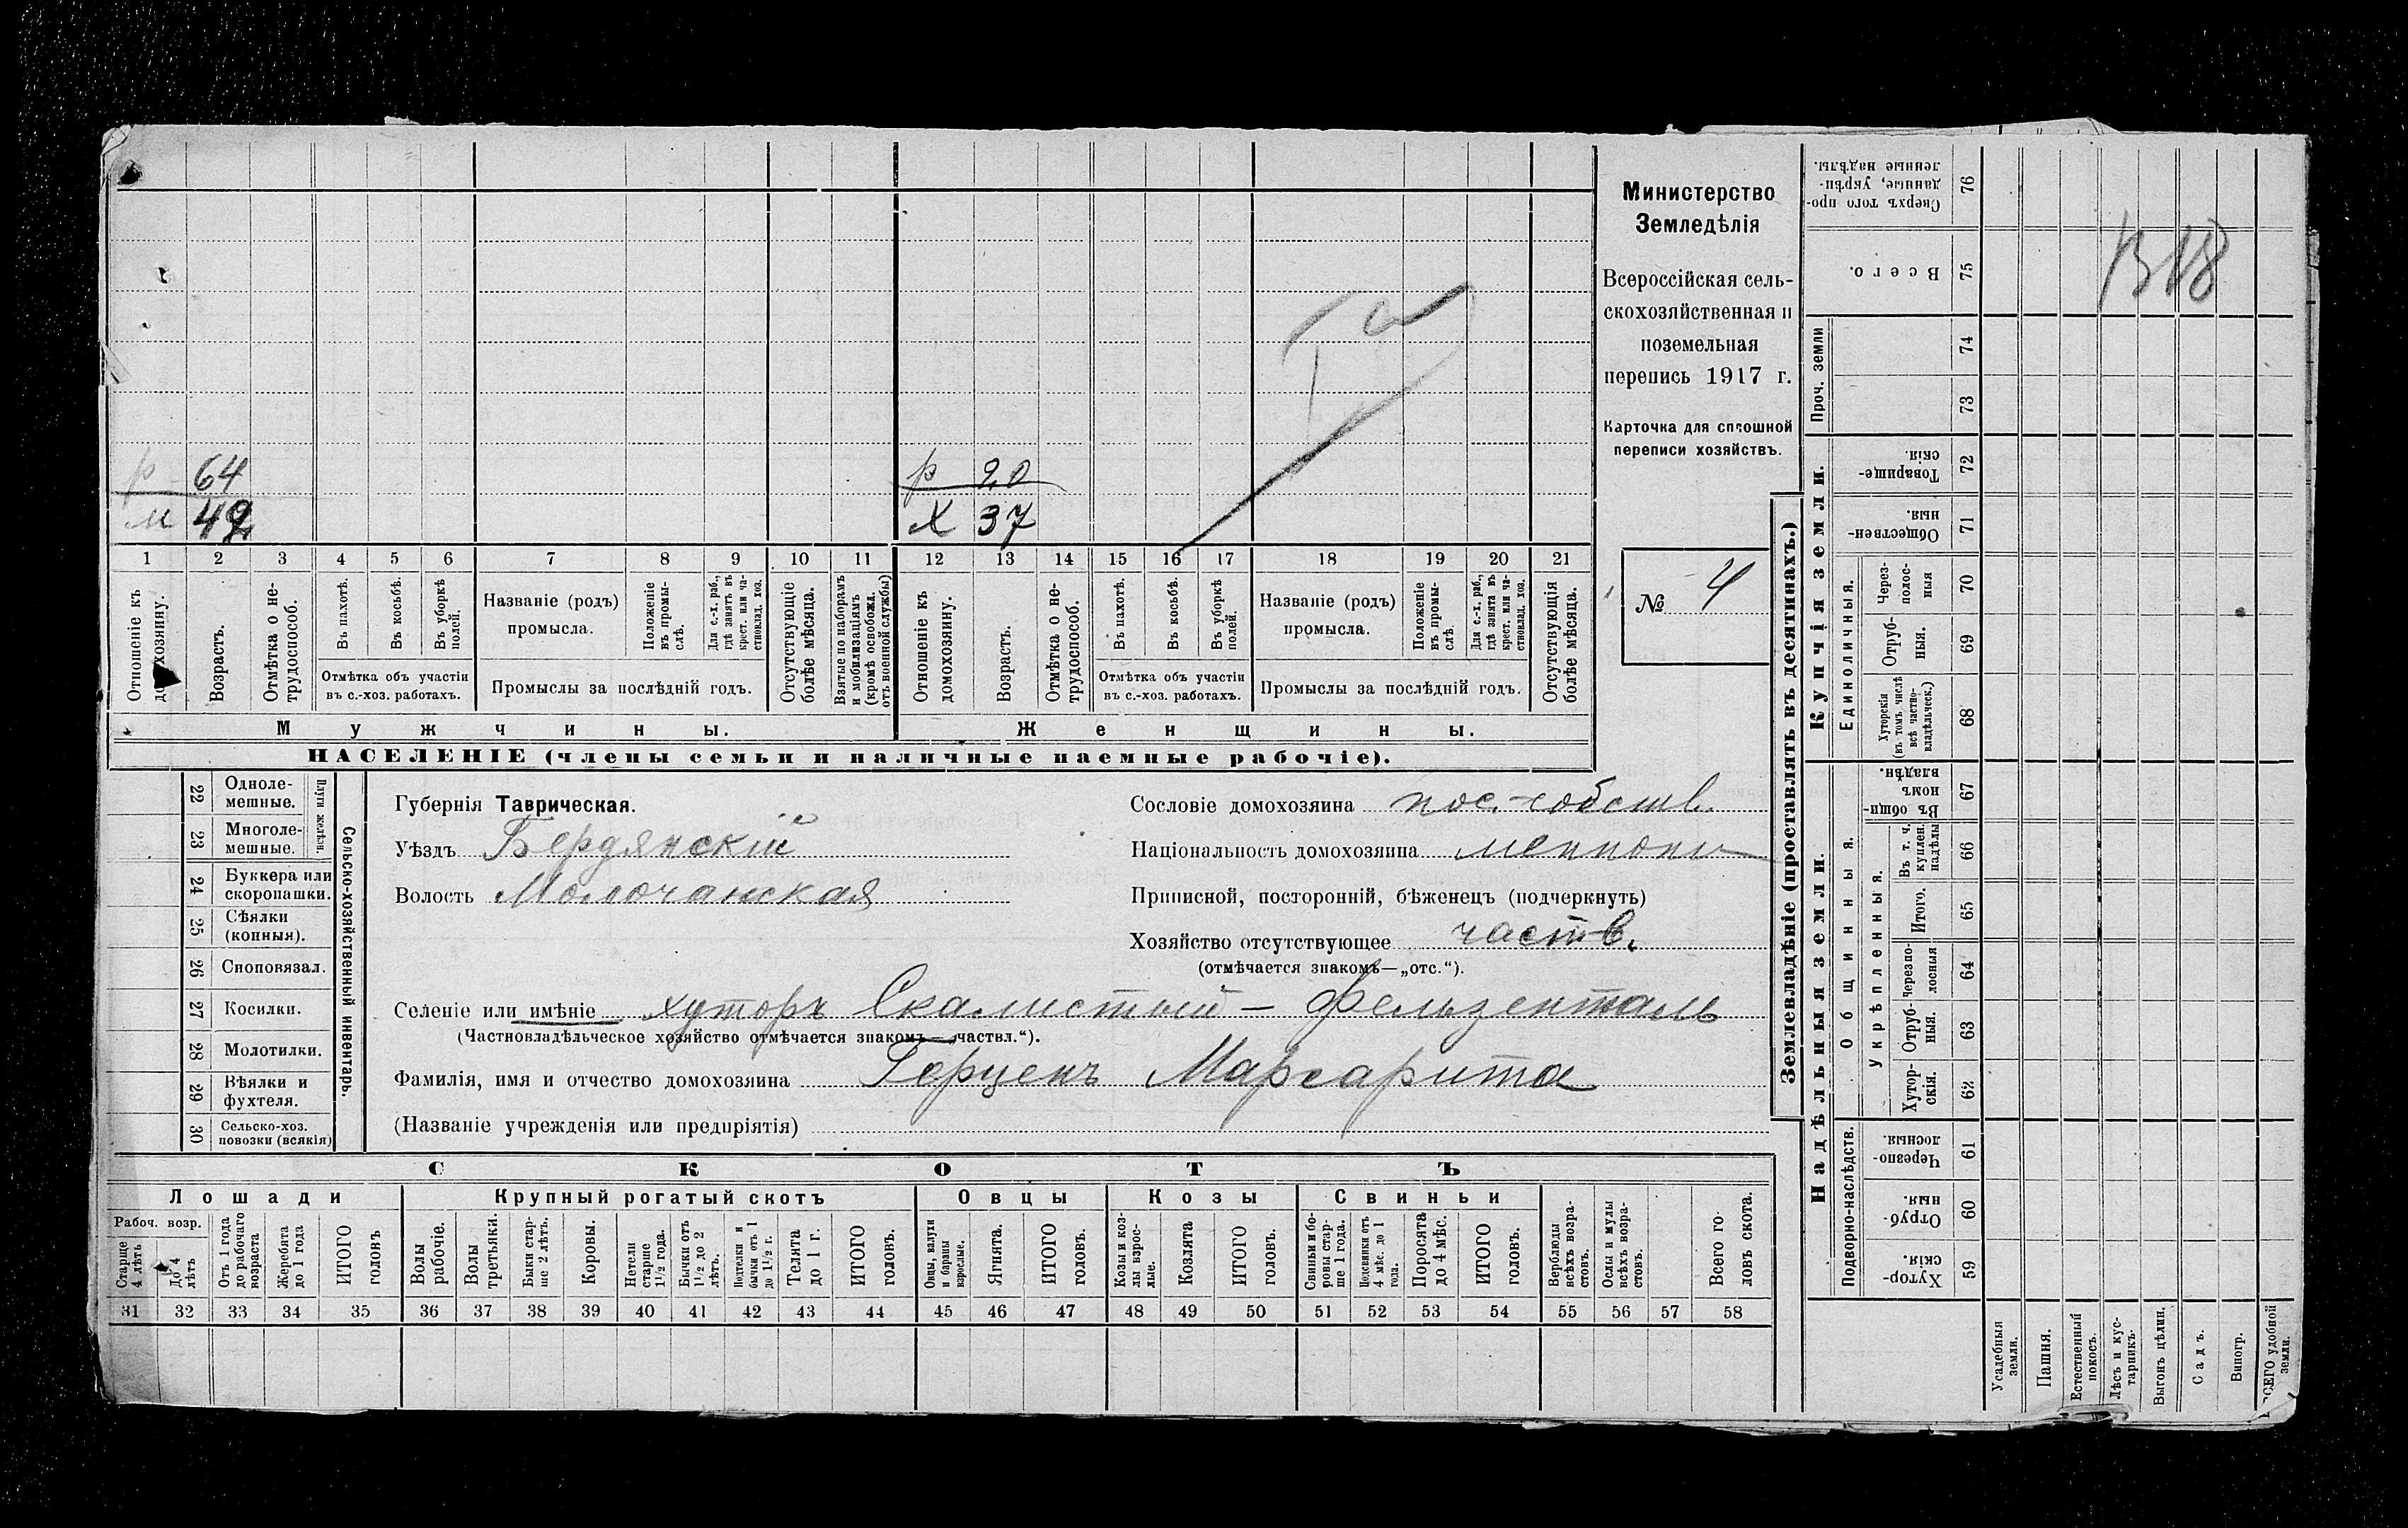 Министерство
Земледѣлія
Всероссійская сель-
скохозяйственная и
поземельная
перепись 1917 г.
Карточка для сплошной
переписи хозяйствъ.
№ 4
1318
р 64
м 42
р 20
Х 37
1 2 3 4 5 6 7 8 9 10 11 12 13 14 15 16 17 18 19 20 21
Отношеніе къ домохозяину.
Возрастъ.
Отмѣтка о не-
трудоспособ.
Въ пахотѣ.
Въ косьбѣ.
Въ уборкѣ
полей.
Отмѣтка объ участіи
въ с.-хоз. работахъ.
Названіе (родъ)
промысла.
Положеніе
въ промы-
слѣ.
Для с.-х. раб.,
гдѣ занятъ въ
крест. или ча-
стновлад. хоз.
Промыслы за послѣдній годъ.
Отсутствующіе
болѣе мѣсяца.
Взятые по наборамъ
и мобилизаціямъ
(кромѣ освобожд.
отъ военной службы)
Отношеніе къ
домохозяину.
Возрастъ.
Отмѣтка о не-
трудоспособ.
Въ пахотѣ.
Въ косьбѣ.
Въ уборкѣ
полей.
Отмѣтка объ участіи
въ с.-хоз. работахъ.
Названіе (родъ)
промысла.
Положеніе
въ промы-
слѣ.
Для с.-х. раб.,
гдѣ занята въ
крест. или ча-
стновлад. хоз.
Промыслы за послѣдній годъ.
Отсутствующія
болѣе мѣсяца.
Мужчины.
Женщины.
НАСЕЛЕНІЕ (члены семьи и наличные наемные рабочіе).
22 Одноле-
мешные.
23 Многоле-
мешные.
Плуги желѣзн.
24 Буккера или
скоропашки.
25 Сѣялки
(конныя).
26 Сноповязал.
27 Косилки.
28 Молотилки.
29 Вѣялки и
фухтеля.
30 Сельско-хоз.
повозки (всякія)
Сельско-хозяйственный инвентарь.
Губернія Таврическая.
Уѣздъ Бердянскій
Волость Молочанская
Сословіе домохозяина пос.-собств.
Національность домохозяина меннони
Приписной, посторонній, бѣженецъ (подчеркнуть)
Хозяйство отсутствующее частв.
(отмѣчается знакомъ—„отс.“).
Селеніе или имѣніе хуторъ Скалистый - Фельзенталь
(Частновладѣльческое хозяйство отмѣчается знакомъ—„частвл.“).
Фамилія, имя и отчество домохозяина Герценъ Маргарита
(Названіе учрежденія или предпріятія)
СКОТЪ
Лошади
Крупный рогатый скотъ
Овцы
Козы
Свиньи
Рабоч. возр.
Старше
4 лѣтъ
До 4
лѣтъ
Отъ 1 года
до рабочаго
возраста
Жеребята
до 1 года
ИТОГО
головъ
Волы
рабочіе.
Волы
третьяки.
Быки стар-
ше 2 лѣтъ.
Коровы.
Нетели
старше
1½ года.
Бычки отъ
1½ до 2
лѣтъ.
Подтелки и
бычки отъ 1
до 1½ г.
Телята
до 1 г.
ИТОГО
головъ.
Овцы, валухи
и бараны
взрослые.
Ягнята.
ИТОГО
головъ.
Козы и коз-
лы взрос-
лые.
Козлята
ИТОГО
головъ.
Свиньи и бо-
ровы стар-
ше 1 года.
Подсвинки отъ
4 мѣс. до 1
года.
Поросята
до 4 мѣс.
ИТОГО
головъ.
Верблюды
всѣхъ возра-
стовъ.
Ослы и мулы
всѣхъ возра-
стовъ.
Всего го-
ловъ скота.
31 32 33 34 35 36 37 38 39 40 41 42 43 44 45 46 47 48 49 50 51 52 53 54 55 56 57 58
Землевладѣніе (проставлять въ десятинахъ.)
Сверхъ того про-
данные, укрѣп-
ленные надѣлы. 76
Всего. 75
Проч. земли
74
73
Купчія земли.
Товарище-
скія. 72
Обществен-
ныя. 71
Единоличныя.
Через-
полос-
ныя 70
Отруб-
ныя. 69
Хуторскія
(въ томъ числѣ
всѣ частно-
владѣльческ.) 68
Надѣльныя земли.
Общинныя.
Въ общи-
номъ
владѣн. 67
Укрѣпленныя.
Въ т. ч.
куплен.
надѣлы 66
Итого. 65
Черезпо-
лосныя 64
Отруб-
ныя. 63
Хутор-
скія. 62
Подворно-наслѣдств.
Черезпо-
лосныя. 61
Отруб-
ныя. 60
Хутор-
скія. 59
Усадебныя
земли.
Пашня.
Естественный
покосъ.
Лѣсъ и кус-
тарникъ.
Выгонъ цѣлин.
Садъ.
Виногр.
ВСЕГО удобной
земли.